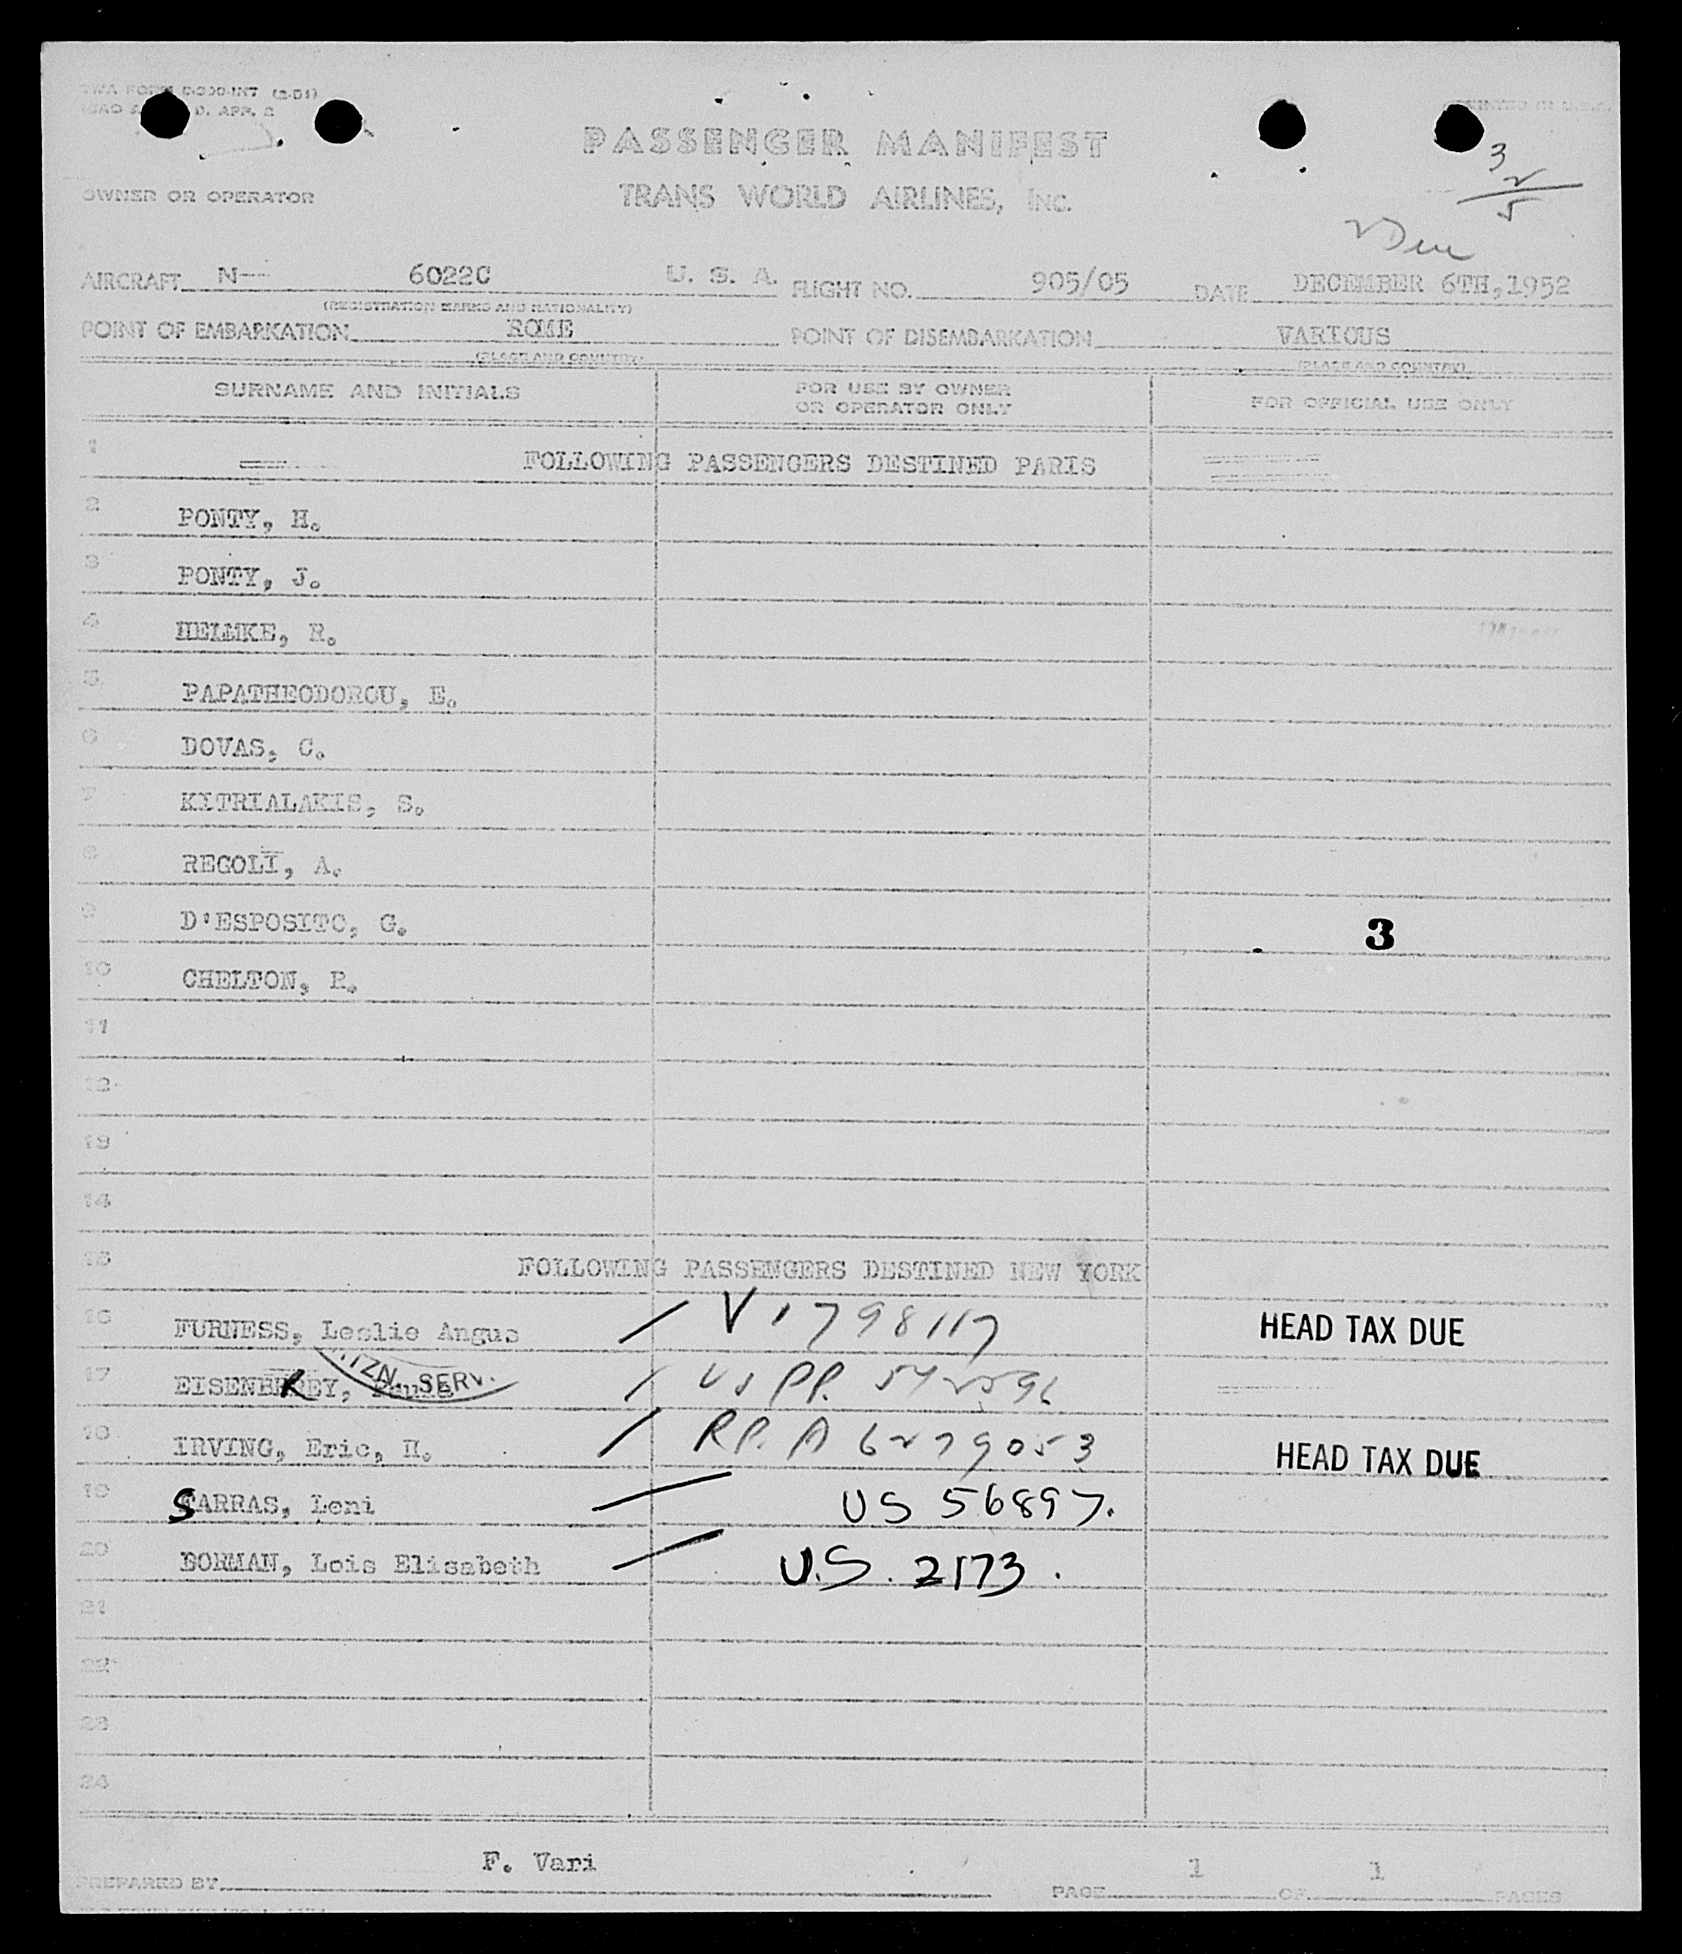 TWA FORM (2-51)
D. APP. 2
PRINTED IN U.S.A.
PASSENGER MANIFEST
3
2
5
OWNER OR OPERATOR TRANS WORLD AIRLINES, INC.
2 Due
AIRCRAFT N-- 6022C U. S. A. FLIGHT NO. 905/05 DATE DECEMBER 6TH,1952
(REGISTRATION MARKS AND NATIONALITY)
POINT OF EMBARKATION ROME POINT OF DISEMBARKATION VARIOUS
(PLACE AND COUNTRY) (PLACE AND COUNTRY)
SURNAME AND INITIALS FOR USE BY OWNER OR OPERATOR ONLY FOR OFFICIAL USE ONLY
1 FOLLOWING PASSENGERS DESTINED PARIS
2 PONTY, H.
3 PONTY, J.
4 HELMKE, R.
5 PAPATHEODOROU, E.
6 DOVAS, C.
7 KITRIALAKIS, S.
8 REGOLI, A.
9 D'ESPOSITO, G. 3
10 CHELTON, R.
11
12
13
14
15 FOLLOWING PASSENGERS DESTINED NEW YORK
16 FURNESS, Leslie Angus / V1798117 HEAD TAX DUE
17 EISENBEREY, / US PP. 542596
ITZN. SERV.
18 IRVING, Eric, H. / RP. A 6279053 HEAD TAX DUE
19 SARRAS, Leni / US 56897.
20 BORMAN, Lois Elisabeth / U.S. 2173.
21
22
23
24
PREPARED BY F. Vari PAGE 1 OF 1 PAGES